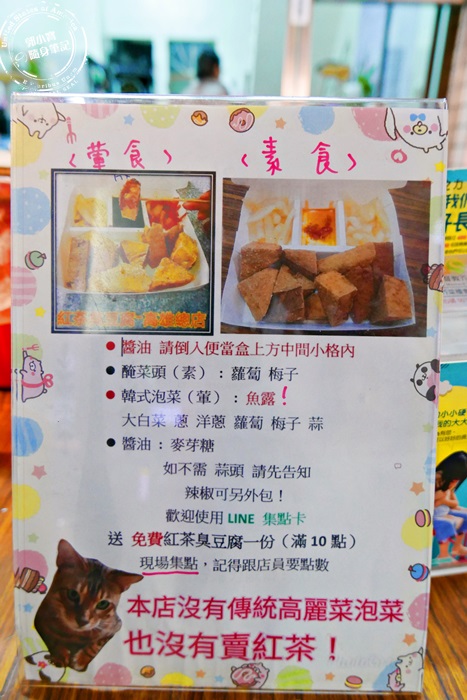 郭小寶
隨身筆記
＜葷食＞ ＜素食＞
醬油 請倒入便當盒上方中間小格內
醃菜頭（素）：蘿蔔 梅子
韓式泡菜（葷）：魚露！
大白菜 蔥 洋蔥 蘿蔔 梅子 蒜
醬油：麥芽糖
如不需 蒜頭 請先告知
辣椒可另外包！
歡迎使用 LINE 集點卡
送 免費紅茶臭豆腐一份（滿 10 點）
現場集點，記得跟店員要點數
本店沒有傳統高麗菜泡菜
也沒有賣紅茶！